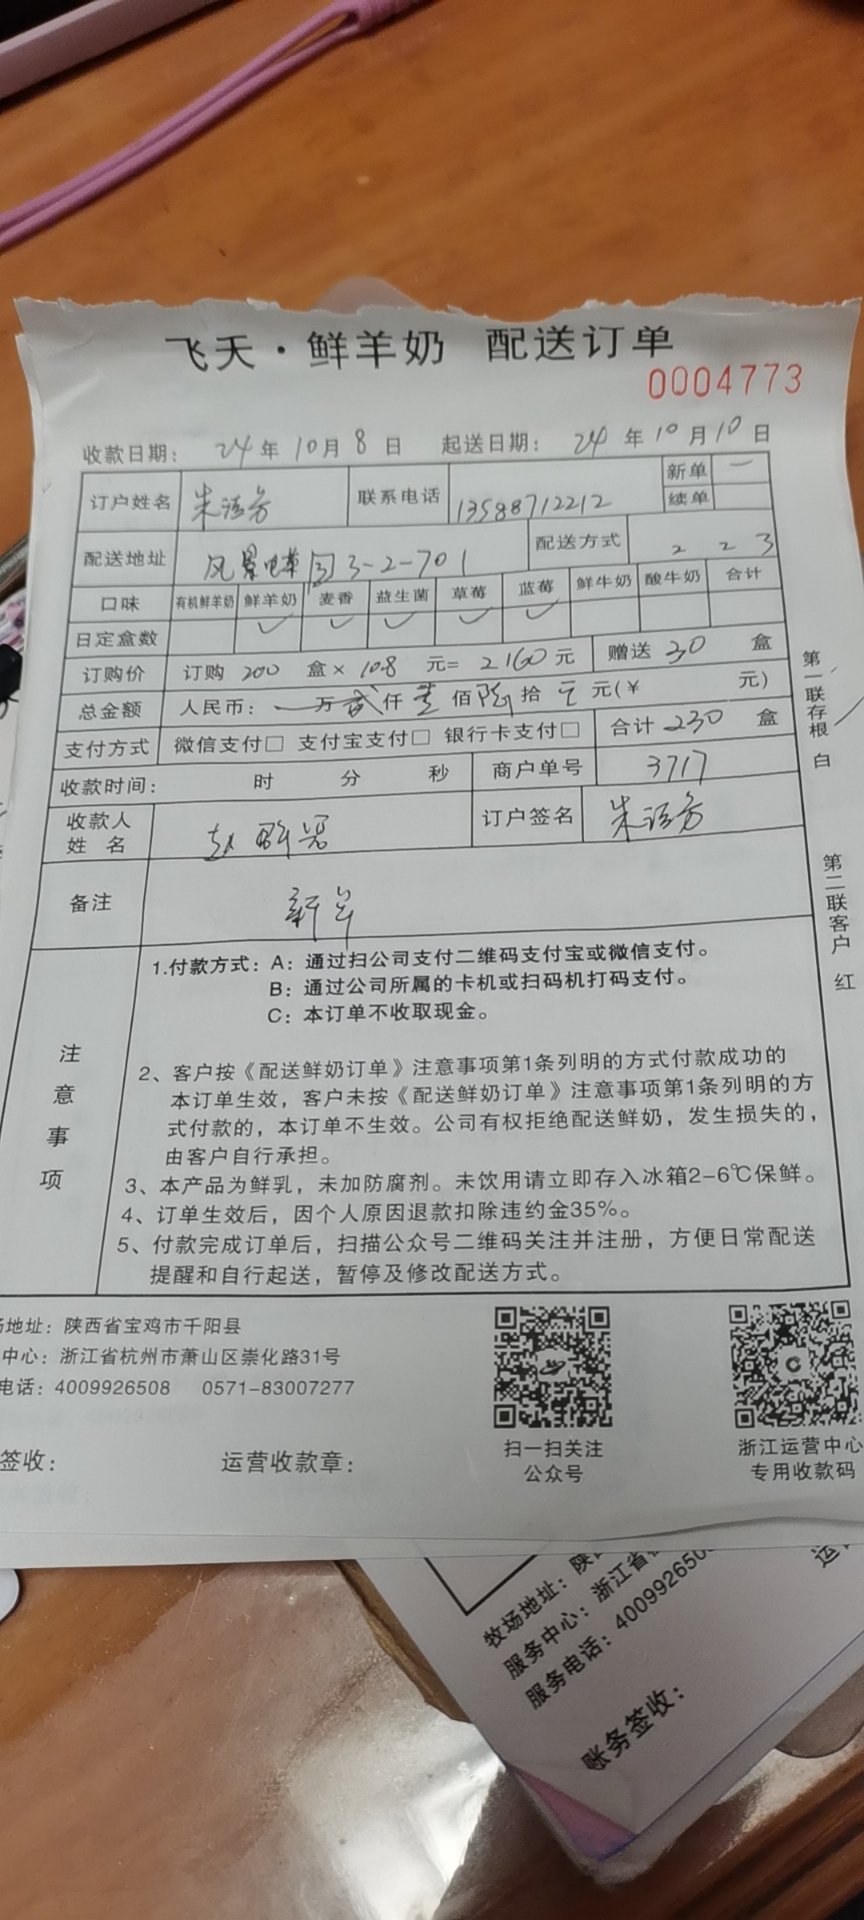 飞天·鲜羊奶 配送订单
0004773
收款日期: 24年10月8日 起送日期: 24年10月10日
订户姓名 朱 联系电话 13588712212 新单 一
续单
配送地址 风景蝶 3-2-701 配送方式 2 2 3
口味 有机鲜羊奶 鲜羊奶 麦香 益生菌 草莓 蓝莓 鲜牛奶 酸牛奶 合计
日定盒数 ✓ ✓ ✓ ✓ ✓
订购价 订购 200 盒× 10.8 元= 2160元 赠送 30 盒
总金额 人民币: 一万贰仟壹佰陆拾元元(¥ 元)
支付方式 微信支付□ 支付宝支付□ 银行卡支付□ 合计 230 盒
收款时间: 时 分 秒 商户单号 3717
收款人姓名 赵 订户签名 朱
备注 新单
注意事项
1.付款方式: A: 通过扫公司支付二维码支付宝或微信支付。
B: 通过公司所属的卡机或扫码机打码支付。
C: 本订单不收取现金。
2、客户按《配送鲜奶订单》注意事项第1条列明的方式付款成功的
本订单生效,客户未按《配送鲜奶订单》注意事项第1条列明的方
式付款的,本订单不生效。公司有权拒绝配送鲜奶,发生损失的,
由客户自行承担。
3、本产品为鲜乳,未加防腐剂。未饮用请立即存入冰箱2-6℃保鲜。
4、订单生效后,因个人原因退款扣除违约金35%。
5、付款完成订单后,扫描公众号二维码关注并注册,方便日常配送
提醒和自行起送,暂停及修改配送方式。
第一联存根 白
第二联客户 红
地址: 陕西省宝鸡市千阳县
中心: 浙江省杭州市萧山区崇化路31号
电话: 4009926508 0571-83007277
签收: 运营收款章:
扫一扫关注
公众号
浙江运营中心
专用收款码
牧场地址: 陕
服务中心: 浙江省
服务电话: 400992650
账务签收:
运